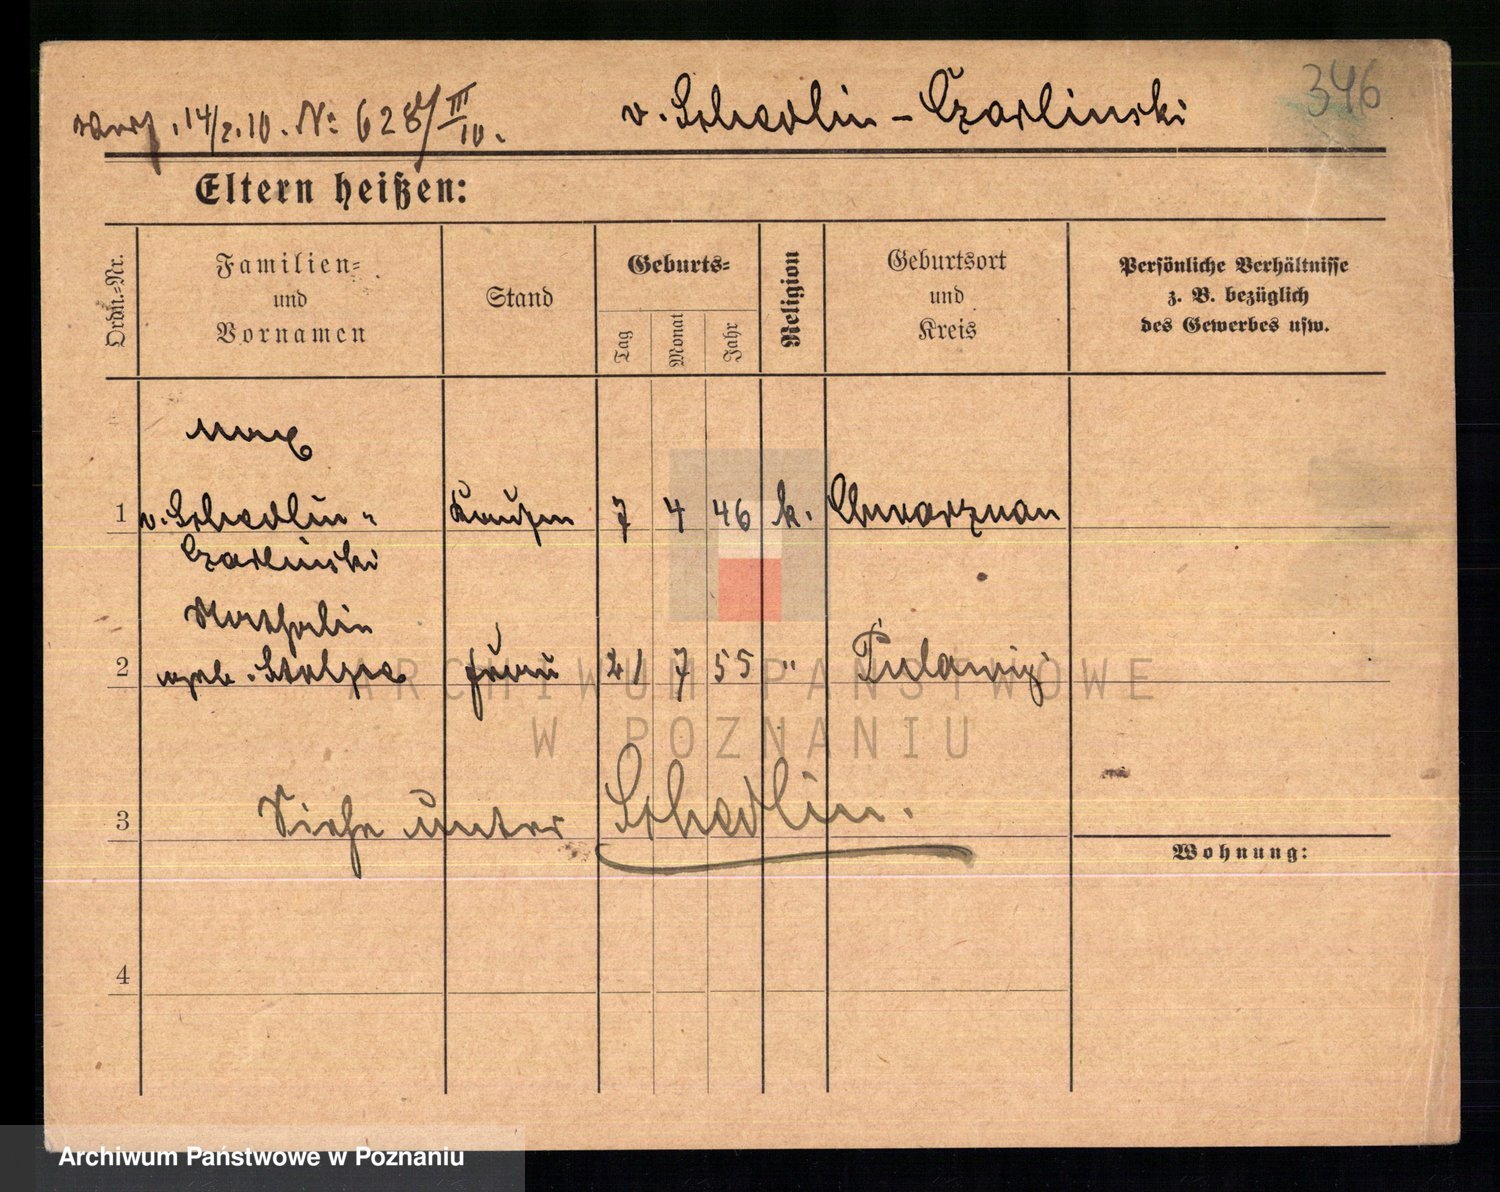 346
verz. 14/2.10. No: 628/III/10. v. Schedlin-Czarlinski
Eltern heißen:
Ordn.-Nr.
Familien-
und
Vornamen
Stand
Geburts-
Tag
Monat
Jahr
Religion
Geburtsort
und
Kreis
Persönliche Verhältnisse
z. B. bezüglich
des Gewerbes usw.
Max
1 v. Schedlin- 7 4 46 k. Chwarznau
Czarlinski
Nathalie
2 geb. Frau 21 7 55 "
ARCHIWUM PAŃSTWOWE
W POZNANIU
3 Siehe unter Schedlin.
Wohnung:
4
Archiwum Państwowe w Poznaniu